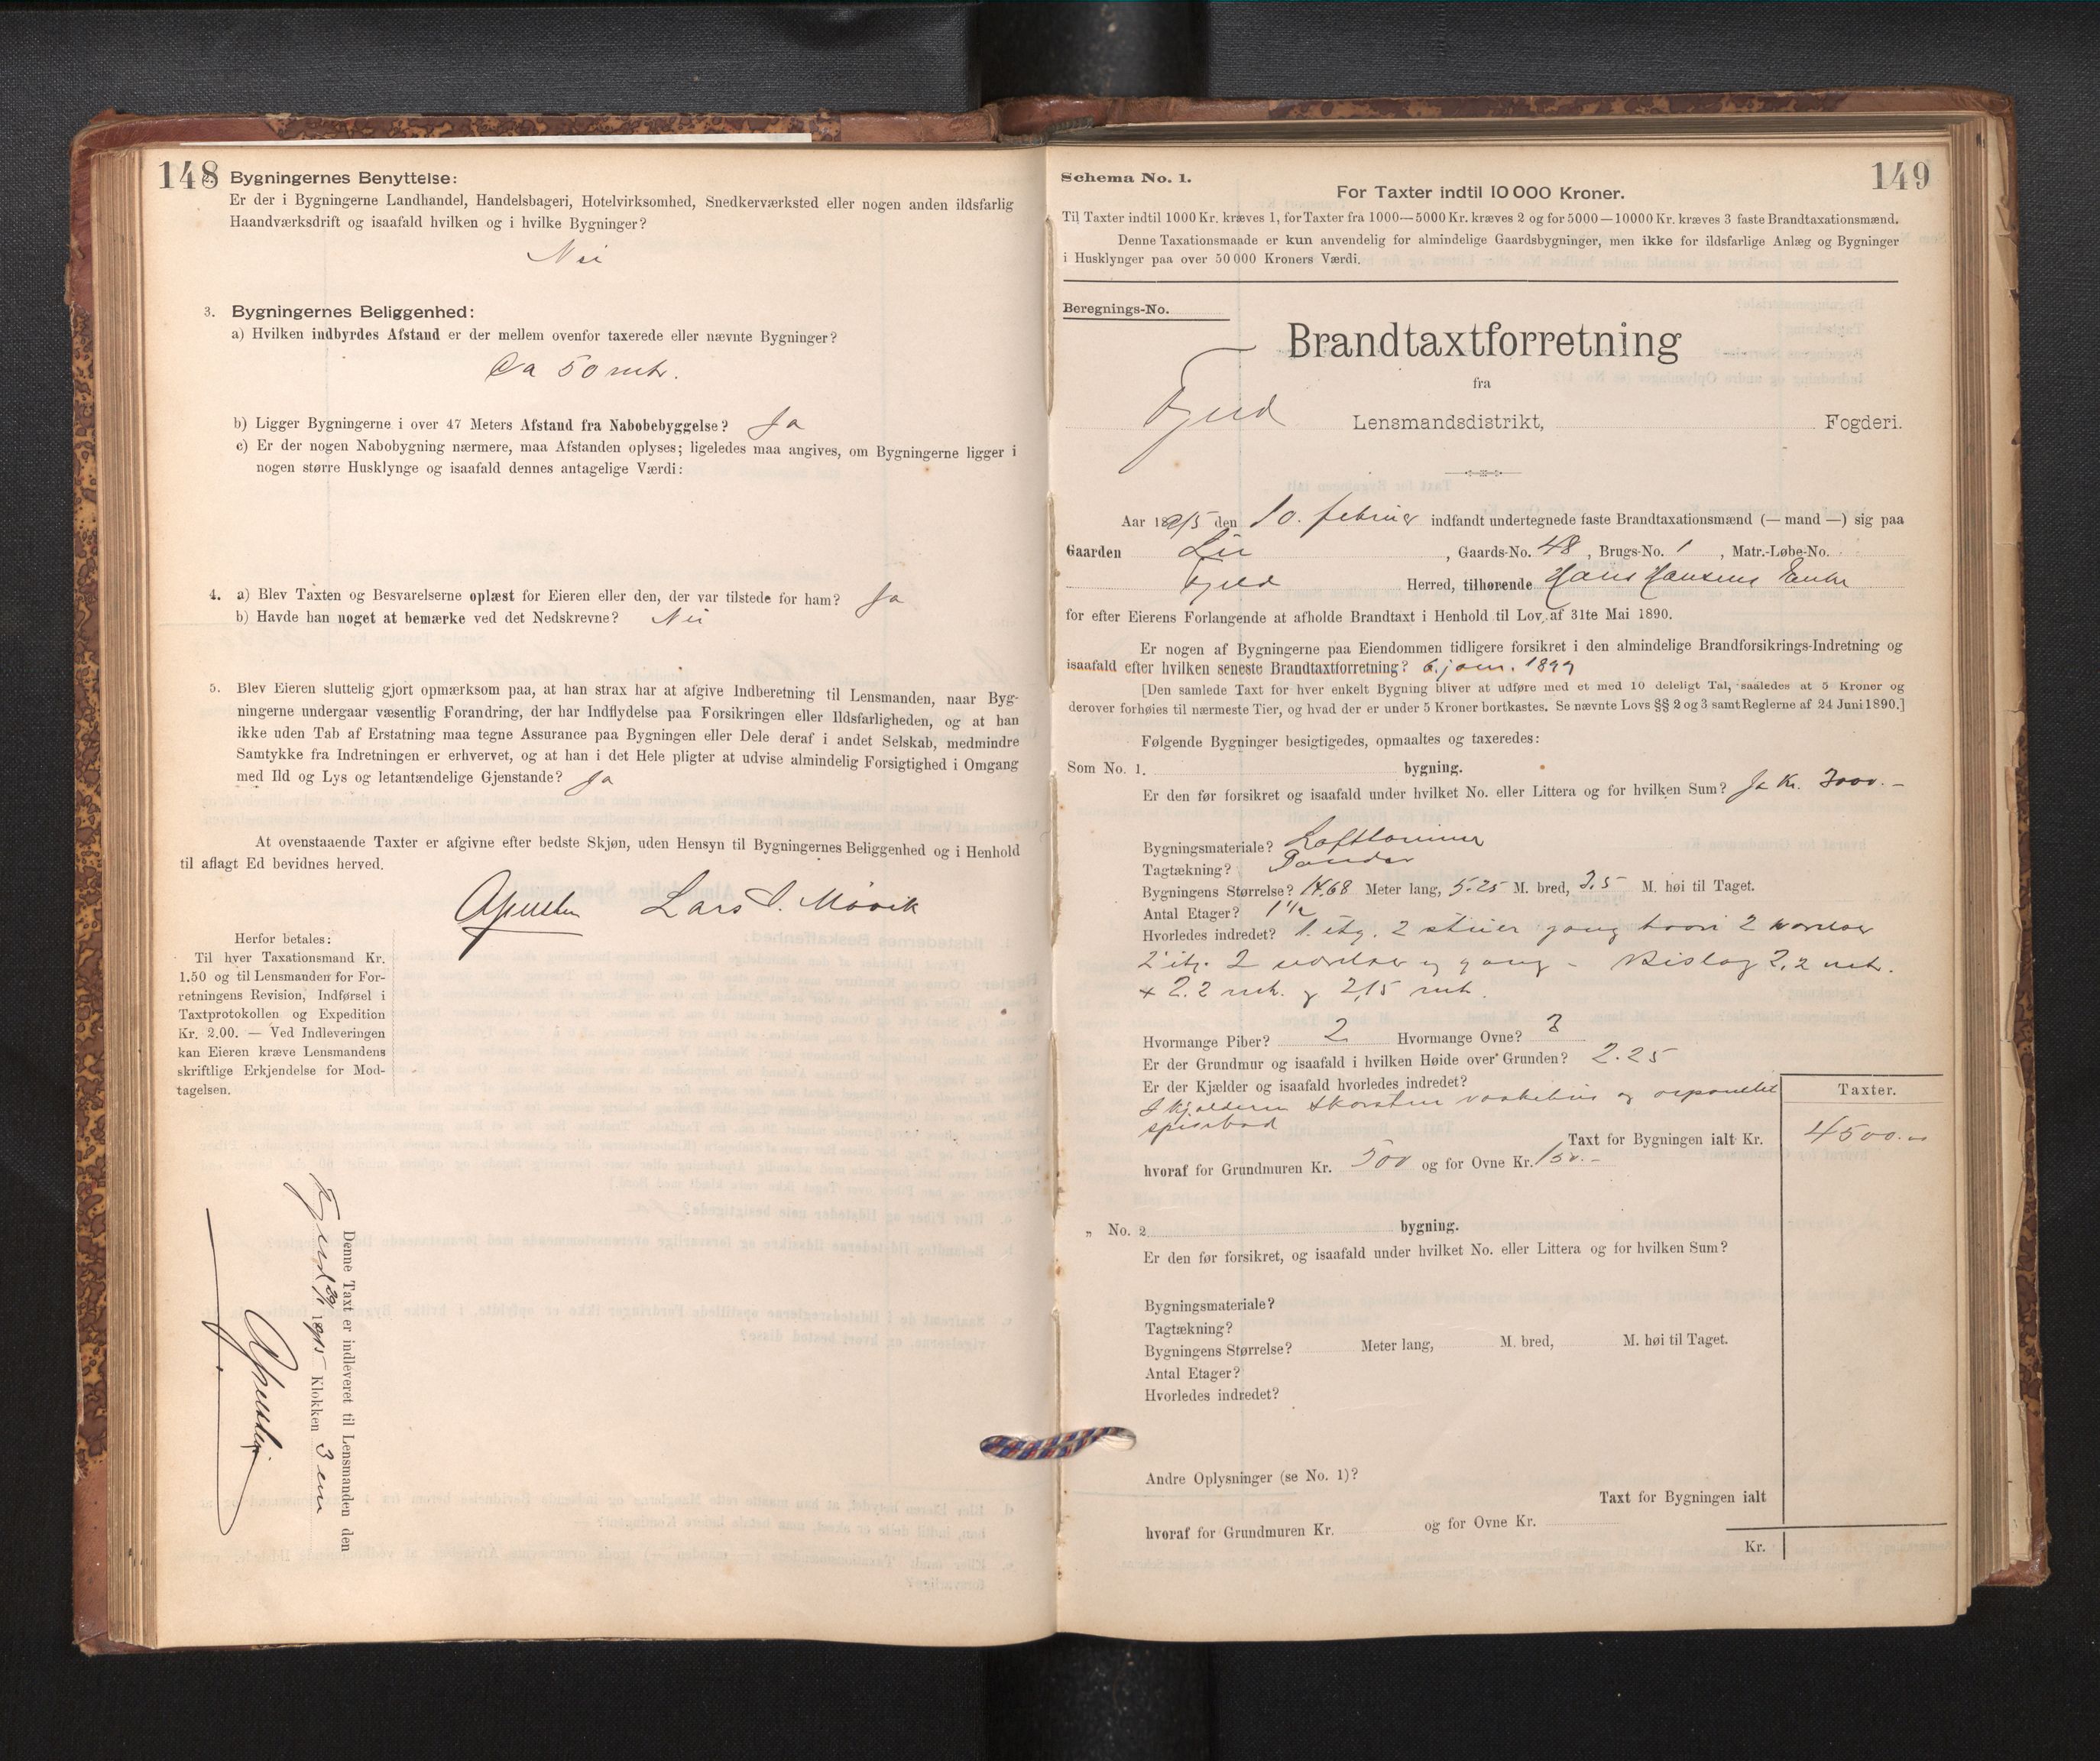 148
2. Bygningernes Benyttelse:
Er der i Bygningerne Landhandel, Handelsbageri, Hotelvirksomhed, Snedkerværksted eller nogen anden ildsfarlig
Haandværksdrift og isaafald hvilken og i hvilke Bygninger?
Nei
3. Bygningernes Beliggenhed:
a) Hvilken indbyrdes Afstand er der mellem ovenfor taxerede eller nævnte Bygninger?
Ca 50 mtr.
b) Ligger Bygningerne i over 47 Meters Afstand fra Nabobebyggelse? Ja
c) Er der nogen Nabobygning nærmere, maa Afstanden oplyses; ligeledes maa angives, om Bygningerne ligger i
nogen større Husklynge og isaafald dennes antagelige Værdi:
4. a) Blev Taxten og Besvarelserne oplæst for Eieren eller den, der var tilstede for ham? Ja
b) Havde han noget at bemærke ved det Nedskrevne? Nei
5. Blev Eieren sluttelig gjort opmærksom paa, at han strax har at afgive Indberetning til Lensmanden, naar Byg-
ningerne undergaar væsentlig Forandring, der har Indflydelse paa Forsikringen eller Ildsfarligheden, og at han
ikke uden Tab af Erstatning maa tegne Assurance paa Bygningen eller Dele deraf i andet Selskab, medmindre
Samtykke fra Indretningen er erhvervet, og at han i det Hele pligter at udvise almindelig Forsigtighed i Omgang
med Ild og Lys og letantændelige Gjenstande? Ja
At ovenstaaende Taxter er afgivne efter bedste Skjøn, uden Hensyn til Bygningernes Beliggenhed og i Henhold
til aflagt Ed bevidnes herved.
Lars J. Møvik
Herfor betales:
Til hver Taxationsmand Kr.
1.50 og til Lensmanden for For-
retningens Revision, Indførsel i
Taxtprotokollen og Expedition
Kr. 2.00. — Ved Indleveringen
kan Eieren kræve Lensmandens
skriftlige Erkjendelse for Mod-
tagelsen.
Denne Taxt er indleveret til Lensmanden den
1915 Klokken 3 em
149
Schema No. 1.
For Taxter indtil 10 000 Kroner.
Til Taxter indtil 1000 Kr. kræves 1, for Taxter fra 1000—5000 Kr. kræves 2 og for 5000—10000 Kr. kræves 3 faste Brandtaxationsmænd.
Denne Taxationsmaade er kun anvendelig for almindelige Gaardsbygninger, men ikke for ildsfarlige Anlæg og Bygninger
i Husklynger paa over 50 000 Kroners Værdi.
Beregnings-No.
Brandtaxtforretning
fra
Fjeld Lensmandsdistrikt, Fogderi.
Aar 1915 den 10. februar indfandt undertegnede faste Brandtaxationsmænd (— mand —) sig paa
Gaarden Lie, Gaards-No. 48, Brugs-No. 1, Matr.-Løbe-No.
Fjeld Herred, tilhørende Hans Hansens Enke
for efter Eierens Forlangende at afholde Brandtaxt i Henhold til Lov af 31te Mai 1890.
Er nogen af Bygningerne paa Eiendommen tidligere forsikret i den almindelige Brandforsikrings-Indretning og
isaafald efter hvilken seneste Brandtaxtforretning? 6. jan. 1899
[Den samlede Taxt for hver enkelt Bygning bliver at udføre med et med 10 deleligt Tal, saaledes at 5 Kroner og
derover forhøies til nærmeste Tier, og hvad der er under 5 Kroner bortkastes. Se nævnte Lovs §§ 2 og 3 samt Reglerne af 24 Juni 1890.]
Følgende Bygninger besigtigedes, opmaaltes og taxeredes:
Som No. 1. bygning.
Er den før forsikret og isaafald under hvilket No. eller Littera og for hvilken Sum? Ja Kr. 3000.-
Bygningsmateriale? Lafttømmer
Tagtækning? Pander
Bygningens Størrelse? 14.68 Meter lang, 5.25 M. bred, 3.5 M. høi til Taget.
Antal Etager? 1 1/2
Hvorledes indredet? 1. etg. 2 stuer gang 2 værelser
2 etg. 2 værelser og gang - Bislag 2,2 mtr.
+ 2.2 mtr. og 2,15 mtr.
Hvormange Piber? 2 Hvormange Ovne? 3
Er der Grundmur og isaafald i hvilken Høide over Grunden? 2.25
Er der Kjælder og isaafald hvorledes indredet?
I kjælderen skorsten vaskehus og
Taxter.
Taxt for Bygningen ialt Kr. 4500.-
hvoraf for Grundmuren Kr. 500 og for Ovne Kr. 150.-
„ No. 2 bygning.
Er den før forsikret, og isaafald under hvilket No. eller Littera og for hvilken Sum?
Bygningsmateriale?
Tagtækning?
Bygningens Størrelse? Meter lang, M. bred, M. høi til Taget.
Antal Etager?
Hvorledes indredet?
Andre Oplysninger (se No. 1)?
Taxt for Bygningen ialt
hvoraf for Grundmuren Kr. og for Ovne Kr.
Kr.